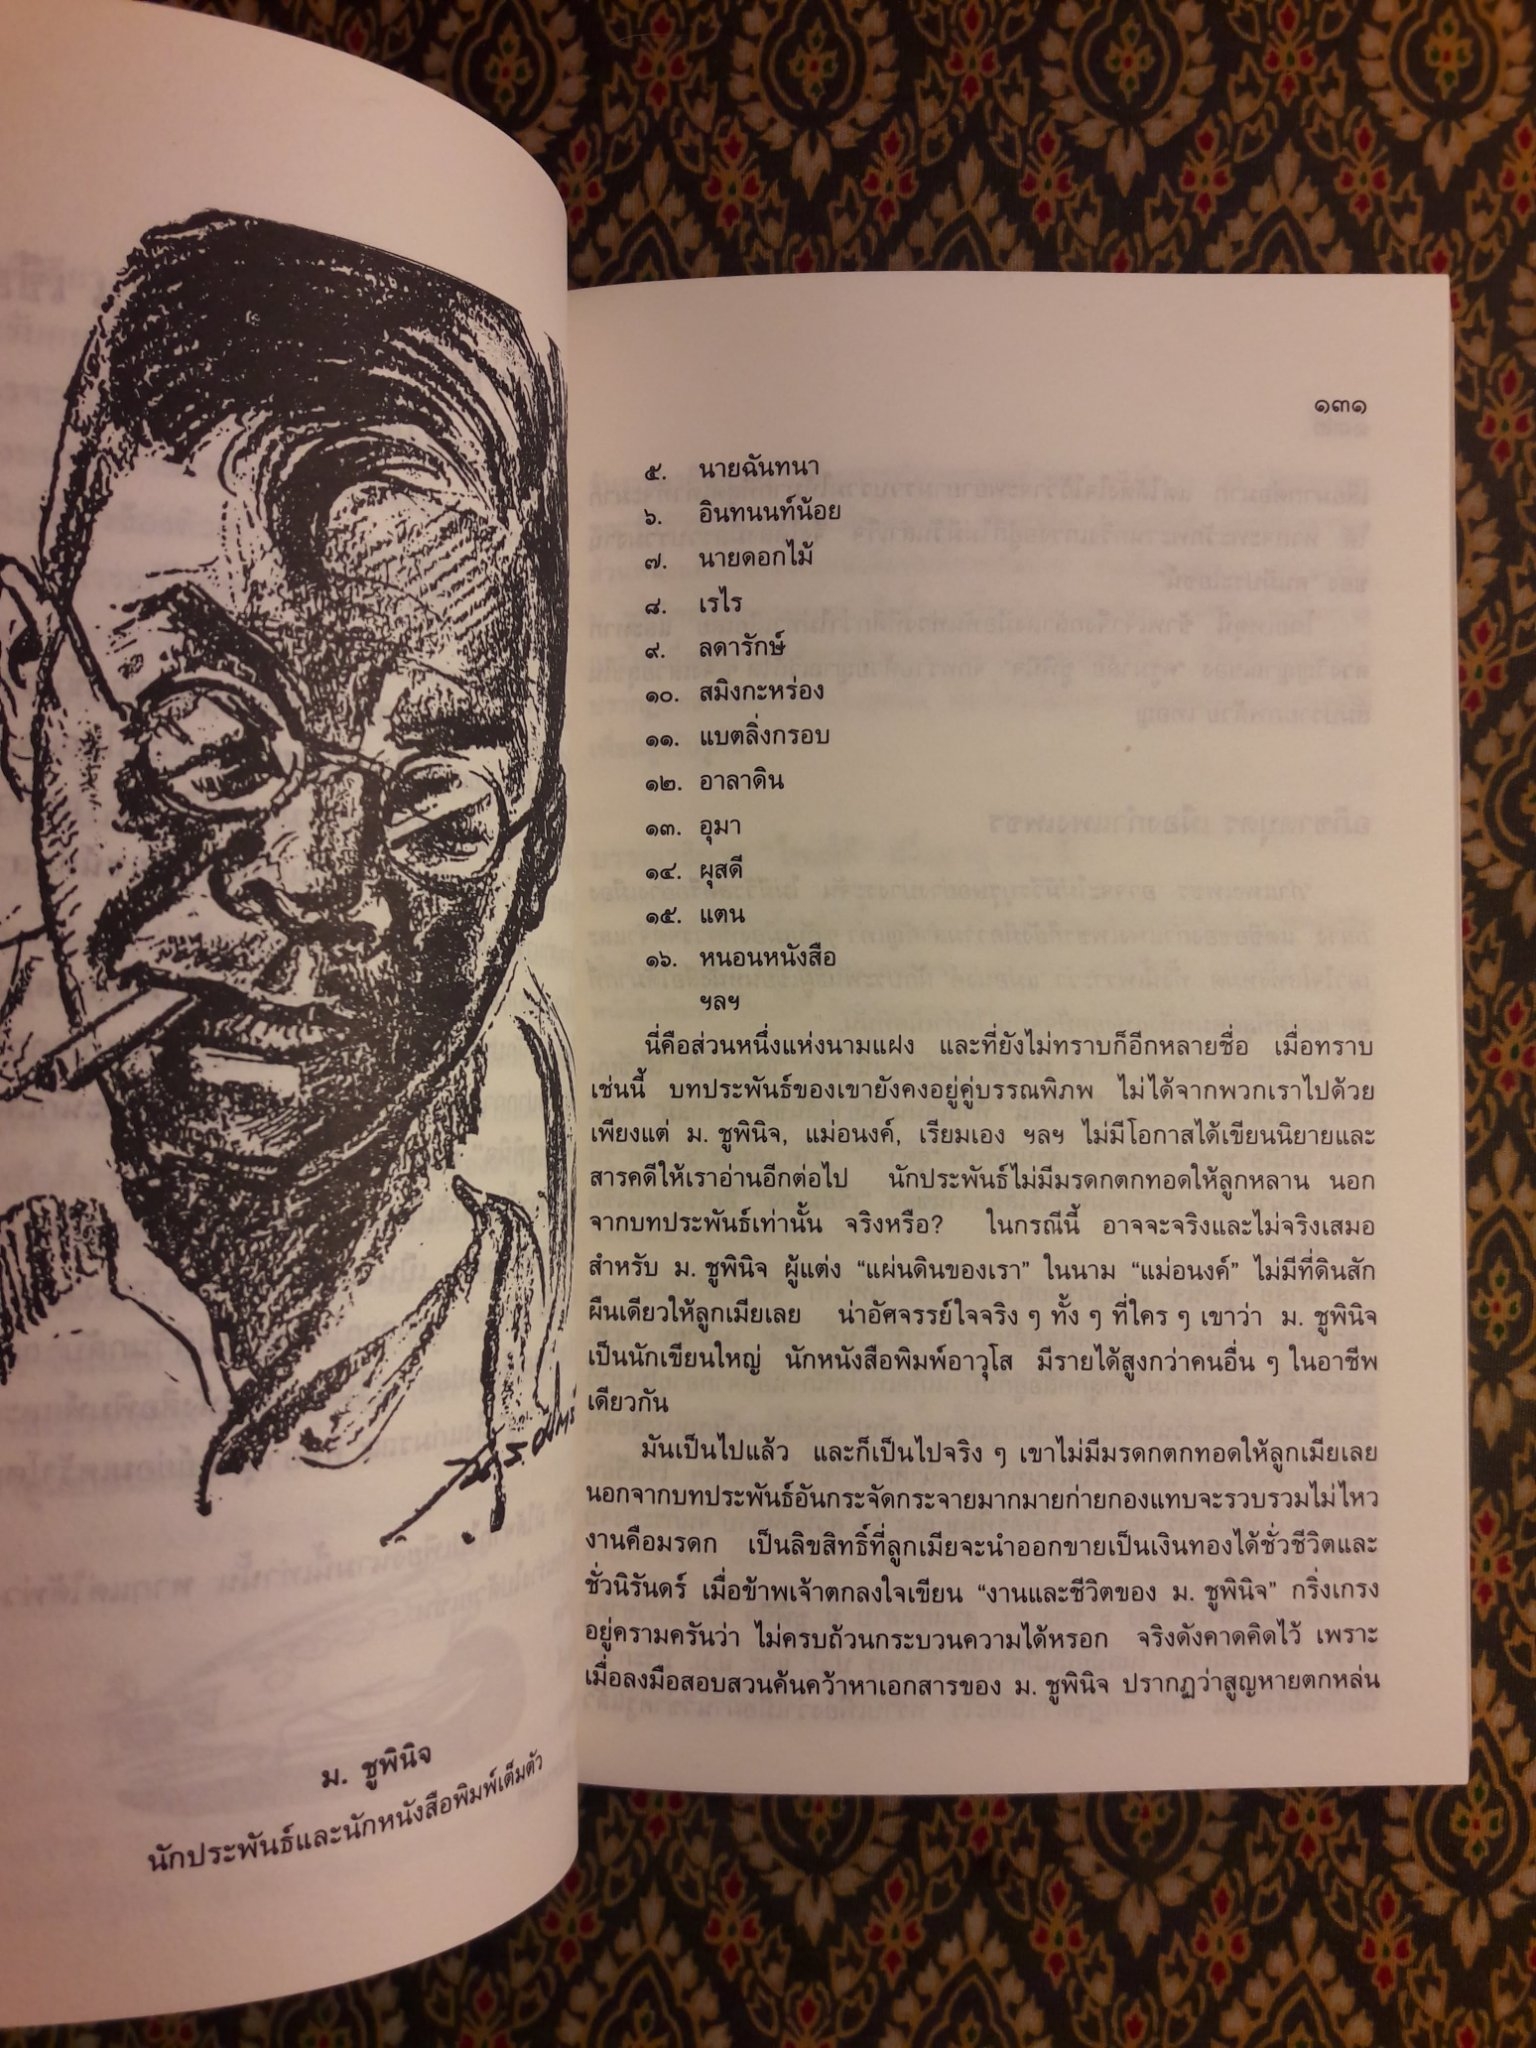 ม. ชูพินิจ
นักประพันธ์และนักหนังสือพิมพ์เต็มตัว
๑๓๑
๕. นายฉันทนา
๖. อินทนนท์น้อย
๗. นายดอกไม้
๘. เรไร
๙. ลดารักษ์
๑๐. สมิงกะหร่อง
๑๑. แบตลิ่งกรอบ
๑๒. อาลาดิน
๑๓. อุมา
๑๔. ผุสดี
๑๕. แตน
๑๖. หนอนหนังสือ
ฯลฯ
นี่คือส่วนหนึ่งแห่งนามแฝง และที่ยังไม่ทราบก็อีกหลายชื่อ เมื่อทราบ
เช่นนี้ บทประพันธ์ของเขายังคงอยู่คู่บรรณพิภพ ไม่ได้จากพวกเราไปด้วย
เพียงแต่ ม. ชูพินิจ, แม่อนงค์, เรียมเอง ฯลฯ ไม่มีโอกาสได้เขียนนิยายและ
สารคดีให้เราอ่านอีกต่อไป นักประพันธ์ไม่มีมรดกตกทอดให้ลูกหลาน นอก
จากบทประพันธ์เท่านั้น จริงหรือ? ในกรณีนี้ อาจจะจริงและไม่จริงเสมอ
สำหรับ ม. ชูพินิจ ผู้แต่ง “แผ่นดินของเรา” ในนาม “แม่อนงค์” ไม่มีที่ดินสัก
ผืนเดียวให้ลูกเมียเลย น่าอัศจรรย์ใจจริง ๆ ทั้ง ๆ ที่ใคร ๆ เขาว่า ม. ชูพินิจ
เป็นนักเขียนใหญ่ นักหนังสือพิมพ์อาวุโส มีรายได้สูงกว่าคนอื่น ๆ ในอาชีพ
เดียวกัน
มันเป็นไปแล้ว และก็เป็นไปจริง ๆ เขาไม่มีมรดกตกทอดให้ลูกเมียเลย
นอกจากบทประพันธ์อันกระจัดกระจายมากมายก่ายกองแทบจะรวบรวมไม่ไหว
งานคือมรดก เป็นลิขสิทธิ์ที่ลูกเมียจะนำออกขายเป็นเงินทองได้ชั่วชีวิตและ
ชั่วนิรันดร์ เมื่อข้าพเจ้าตกลงใจเขียน “งานและชีวิตของ ม. ชูพินิจ” กริ่งเกรง
อยู่ครามครันว่า ไม่ครบถ้วนกระบวนความได้หรอก จริงดังคาดคิดไว้ เพราะ
เมื่อลงมือสอบสวนค้นคว้าหาเอกสารของ ม. ชูพินิจ ปรากฏว่าสูญหายตกหล่น